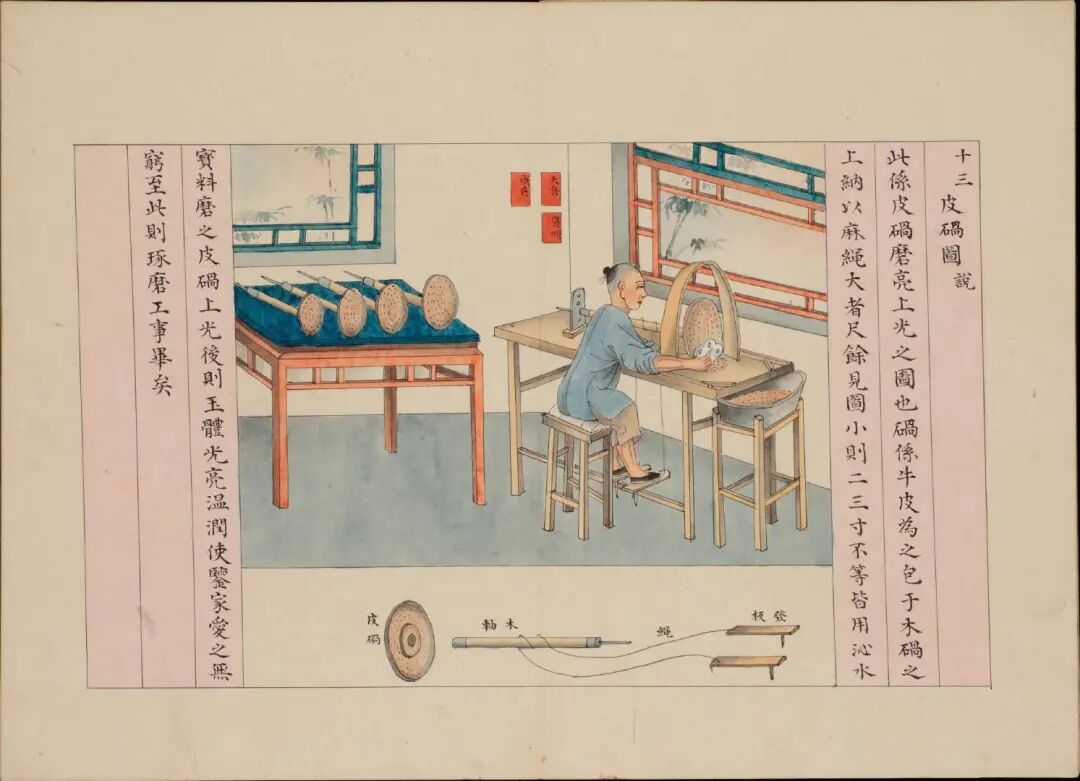 十三 皮碢圖說
此係皮碢磨亮上光之圖也碢係牛皮為之包于木碢之
上納以麻繩大者尺餘見圖小則二三寸不等皆用沁水
寶料磨之皮碢上光後則玉體光亮溫潤使鑒家愛之無
窮至此則琢磨工事畢矣
登板
繩
木軸
皮碢